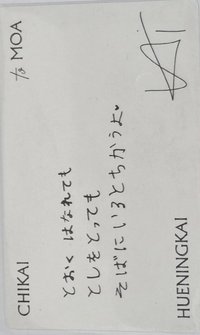 CHIKAI to MOA
とおくはなれても
としをとっても
そばにいるとちかうよ♥
HUENINGKAI